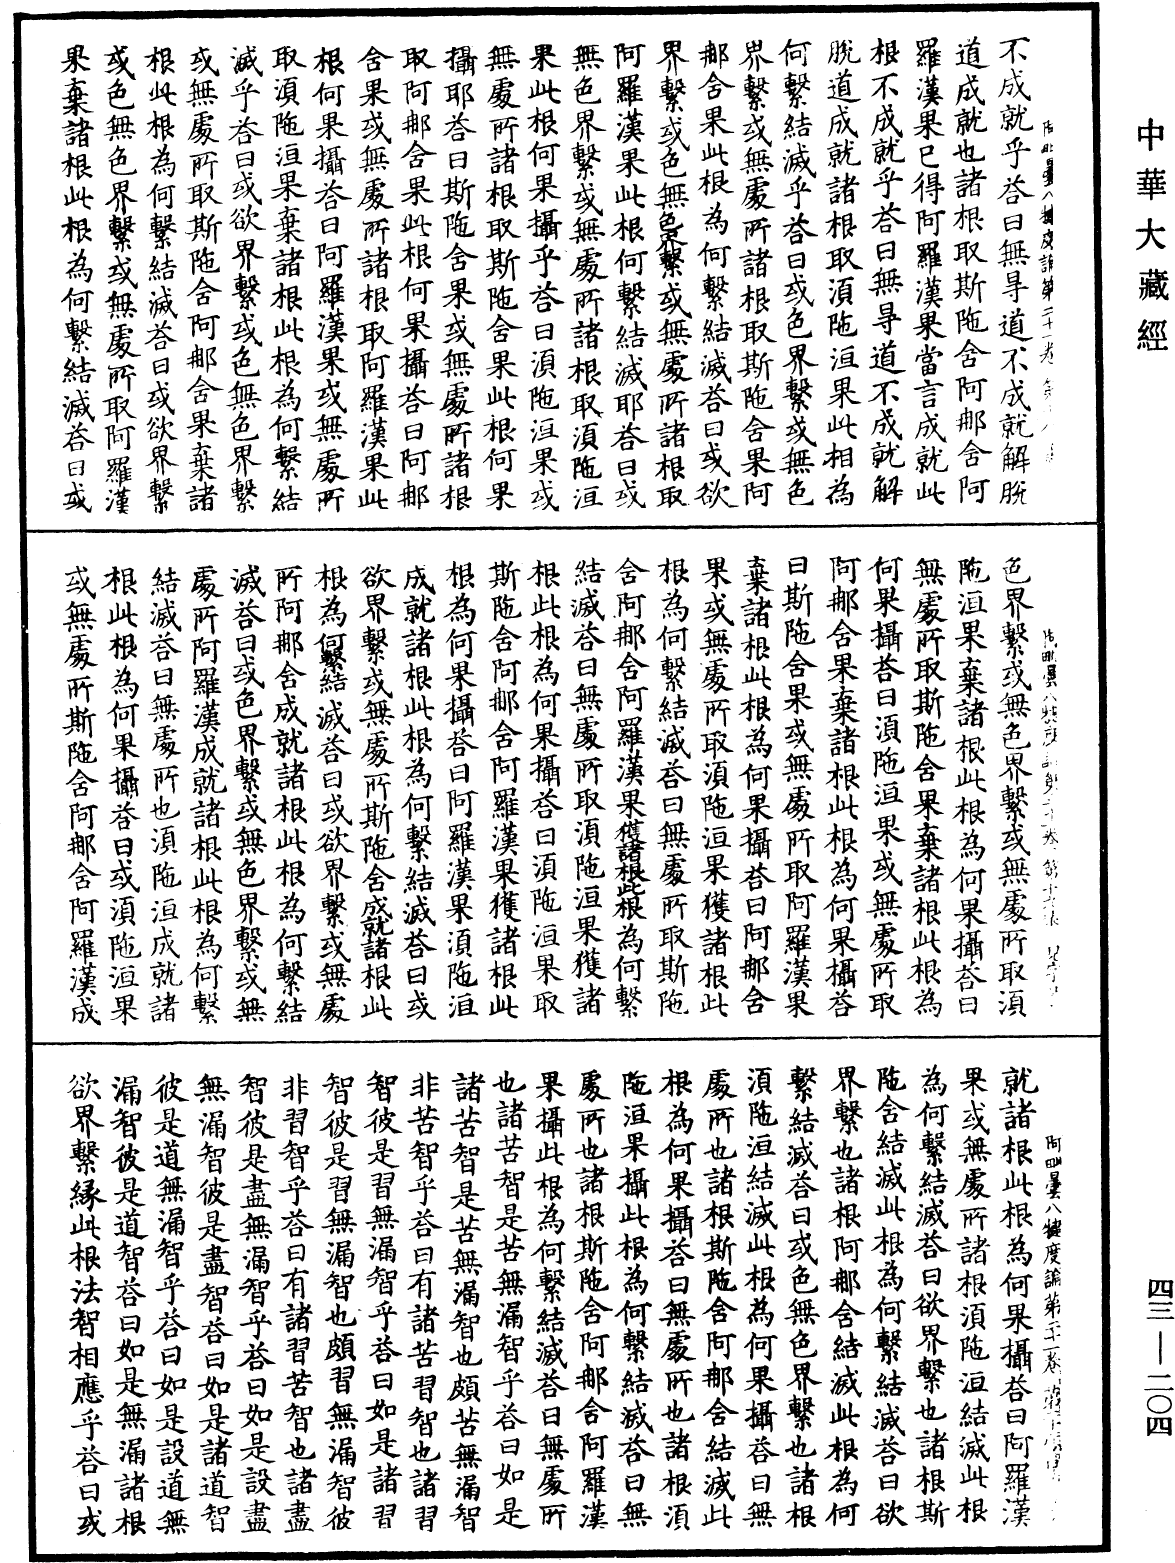 中華大藏經
不成就乎荅曰無㝵道不成就解脫
道成就也諸根取斯陁含阿那含阿
羅漢果已得阿羅漢果當言成就此
根不成就乎荅曰無㝵道不成就解
脫道成就諸根取湏陁洹果此相為
何繫結滅乎荅曰或色界繫或無色
界繫或無處所諸根取斯陁含果阿
那含果此根為何繫結滅荅曰或欲
界繫或色無色界繫或無處所諸根取
阿羅漢果此根何繫結滅耶荅曰或
無色界繫或無處所諸根取湏陁洹
果此根何果攝乎荅曰湏陁洹果或
無處所諸根取斯陁含果此根何果
攝耶荅曰斯陁含果或無處所諸根
取阿那含果此根何果攝荅曰阿那
含果或無處所諸根取阿羅漢果此
根何果攝荅曰阿羅漢果或無處所
取湏陁洹果棄諸根此根為何繫結
滅乎荅曰或欲界繫或色無色界繫
或無處所取斯陁含阿那含果棄諸
根此根為何繫結滅荅曰或欲界繫
或色無色界繫或無處所取阿羅漢
果棄諸根此根為何繫結滅荅曰或
色界繫或無色界繫或無處所取湏
陁洹果棄諸根此根為何果攝荅曰
無處所取斯陁含果棄諸根此根為
何果攝荅曰湏陁洹果或無處所取
阿那含果棄諸根此根為何果攝荅
曰斯陁含果或無處所取阿羅漢果
棄諸根此根為何果攝荅曰阿那含
果或無處所取湏陁洹果獲諸根此
根為何繫結滅荅曰無處所取斯陁
含阿那含阿羅漢果獲諸根此根為何繫
結滅荅曰無處所取湏陁洹果獲諸
根此根為何果攝荅曰湏陁洹果取
斯陁含阿那含阿羅漢果獲諸根此
根為何果攝荅曰阿羅漢果湏陁洹
成就諸根此根為何繫結滅荅曰或
欲界繫或無處所斯陁含成就諸根此
根為何繫結滅荅曰或欲界繫或無處
所阿那含成就諸根此根為何繫結
滅荅曰或色界繫或無色界繫或無
處所阿羅漢成就諸根此根為何繫
結滅荅曰無處所也湏陁洹成就諸
根此根為何果攝荅曰或湏陁洹果
或無處所斯陁含阿那含阿羅漢成
就諸根此根為何果攝荅曰阿羅漢
果或無處所諸根湏陁洹結滅此根
為何繫結滅荅曰欲界繫也諸根斯
陁含結滅此根為何繫結滅荅曰欲
界繫也諸根阿那含結滅此根為何
繫結滅荅曰或色無色界繫也諸根
湏陁洹結滅此根為何果攝荅曰無
處所也諸根斯陁含阿那含結滅此
根為何果攝荅曰無處所也諸根湏
陁洹果攝此根為何繫結滅荅曰無
處所也諸根斯陁含阿那含阿羅漢
果攝此根為何繫結滅荅曰無處所
也諸苦智是苦無漏智乎荅曰如是
諸苦智是苦無漏智也頗苦無漏智
非苦智乎荅曰有諸苦習智也諸習
智彼是習無漏智乎荅曰如是諸習
智彼是習無漏智也頗習無漏智彼
非習智乎荅曰有諸習苦智也諸盡
智彼是盡無漏智乎荅曰如是設盡
無漏智彼是盡智荅曰如是諸道智
彼是道無漏智乎荅曰如是設道無
漏智彼是道智荅曰如是無漏諸根
欲界繫緣此根法智相應乎荅曰或
四三—二〇四